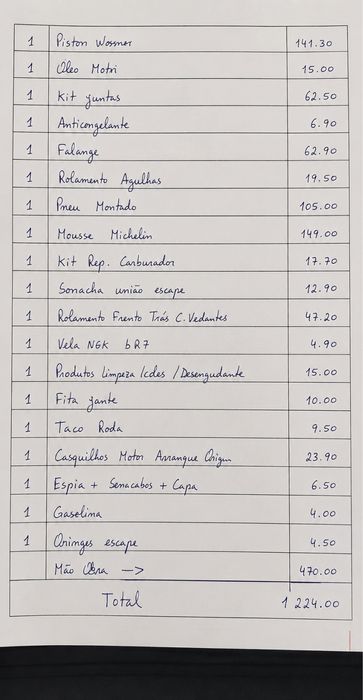 1 Piston Wossner 141.30
1 Oleo Motri 15.00
1 Kit juntas 62.50
1 Anticongelante 6.90
1 Falange 62.90
1 Rolamento Agulhas 19.50
1 Pneu Montado 105.00
1 Mousse Michelin 149.00
1 Kit Rep. Carburador 17.70
1 Sonacha união escape 12.90
1 Rolamento Frento Trás C. Vedantes 47.20
1 Vela NGK bR7 4.90
1 Produtos Limpeza /cdes /Desengudante 15.00
1 Fita jante 10.00
1 Taco Roda 9.50
1 Casquilhos Motor Arranque Origin 23.90
1 Espia + Senacabos + Capa 6.50
1 Gasolina 4.00
1 Orimges escape 4.50
Mão Obra —> 470.00
Total 1 224.00